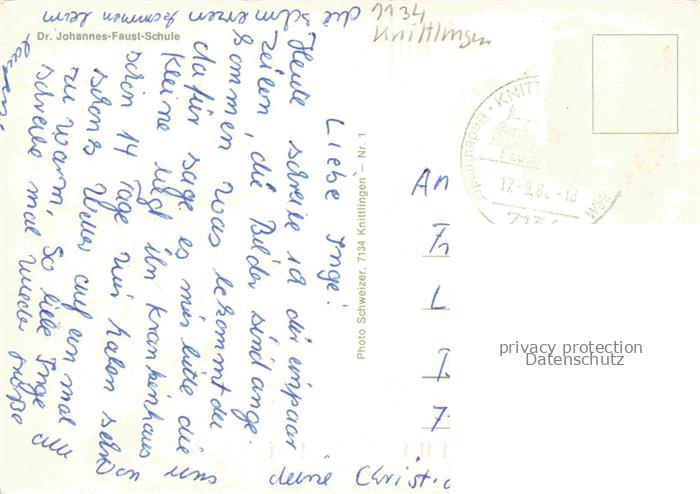 Dr. Johannes-Faust-Schule
7134
Knittlingen
Liebe Inge!
Heute schreibe ich dir ein paar
Zeilen, die Bilder sind ange
kommen was bekommt du
dafür sage es mir bitte die
kleine liegt ihn Krankenhaus
schon 14 Tage wir haben
schons Wetter auf ein mal
zu warm, So liebe Inge
schreibe mal wieder Grüße
uns
deine
Photo Schweizer, 7134 Knittlingen – Nr. 1
KNITT
FAUST
17.-9.8
-18
Welt
7134
An
Fr
L
7
privacy protection
Datenschutz